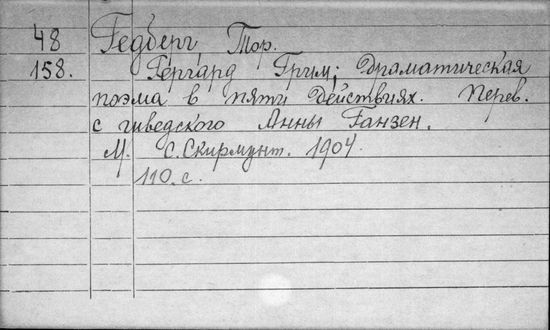 48 Гедберг, Тор.
158. Гергард Грим; Драматическая
поэма в пяти действиях. Перев.
с шведского Анны Ганзен.
М. С. Скирмунт. 1904.
110. с.